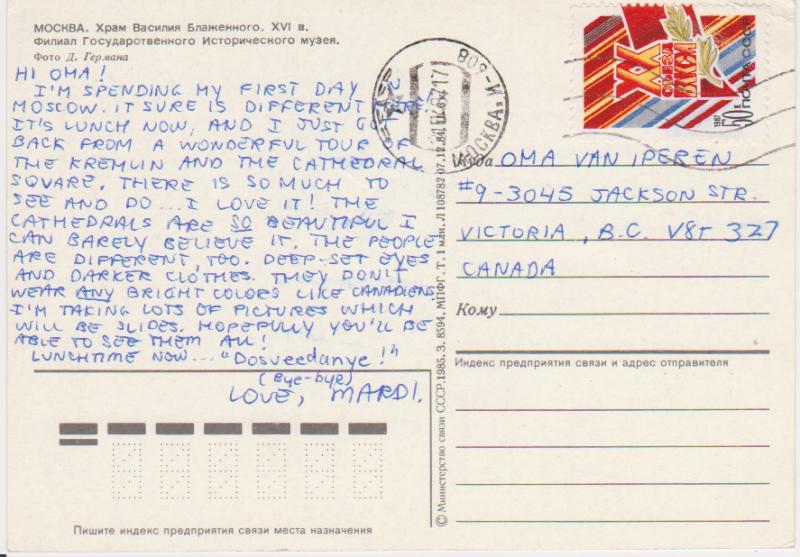 МОСКВА. Храм Василия Блаженного. XVI в.
Филиал Государственного Исторического музея.
Фото Д. Германа
HI OMA!
I'M SPENDING MY FIRST DAY IN
MOSCOW. IT SURE IS DIFFERENT HERE.
IT'S LUNCH NOW, AND I JUST GOT
BACK FROM A WONDERFUL TOUR OF
THE KREMLIN AND THE CATHEDRAL
SQUARE. THERE IS SO MUCH TO
SEE AND DO... I LOVE IT! THE
CATHEDRALS ARE SO BEAUTIFUL I
CAN BARELY BELIEVE IT. THE PEOPLE
ARE DIFFERENT, TOO. DEEP-SET EYES
AND DARKER CLOTHES. THEY DON'T
WEAR ANY BRIGHT COLORS LIKE CANADIENS.
I'M TAKING LOTS OF PICTURES WHICH
WILL BE SLIDES. HOPEFULLY YOU'LL BE
ABLE TO SEE THEM ALL!
LUNCHTIME NOW... "Dosveedanye!"
(Bye-bye)
LOVE, MARDI.
Пишите индекс предприятия связи места назначения
© Министерство связи СССР, 1985. З. 8594. МПФГ. Т. 1 млн. Л 108782 07.12.84.
МОСКВА
808
XX
СЪЕЗД
ВЛКСМ
50к
ПОЧТА СССР
1987
Куда OMA VAN IPEREN
#9-3045 JACKSON STR.
VICTORIA, B.C. V8T 3Z7
CANADA
Кому
Индекс предприятия связи и адрес отправителя